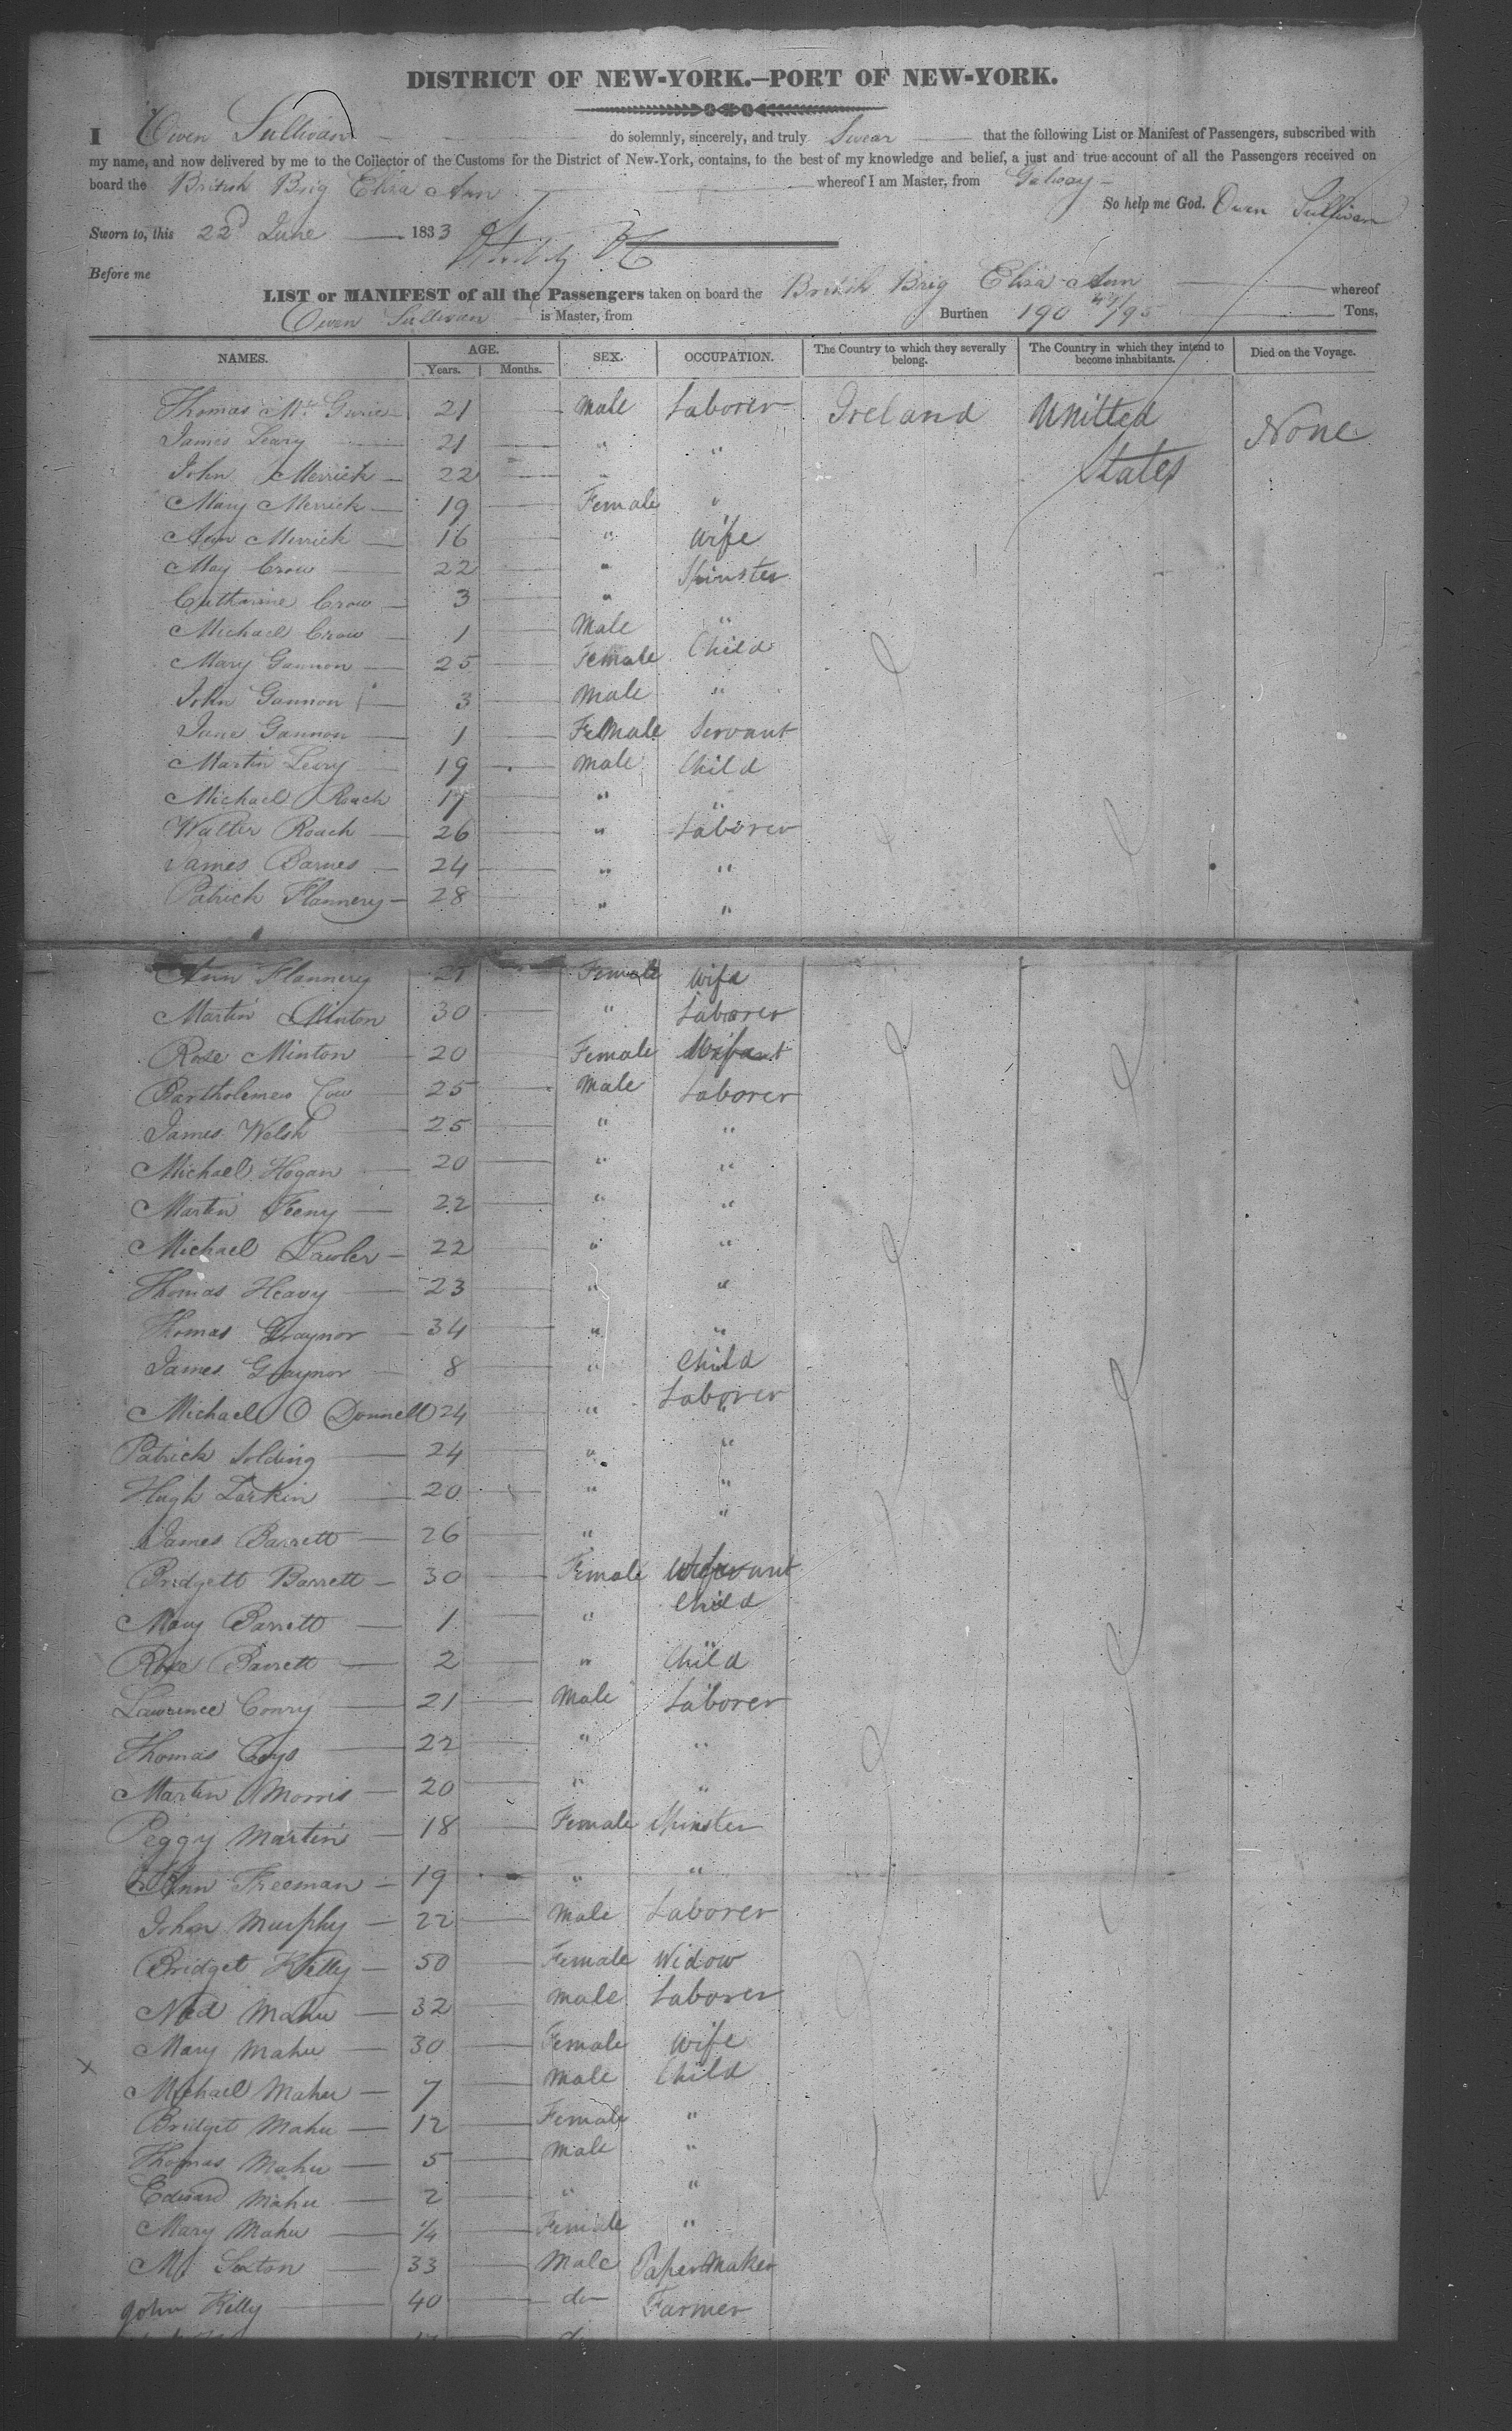 DISTRICT OF NEW-YORK.—PORT OF NEW-YORK.
I Owen Sullivan do solemnly, sincerely, and truly Swear that the following List or Manifest of Passengers, subscribed with
my name, and now delivered by me to the Collector of the Customs for the District of New-York, contains, to the best of my knowledge and belief, a just and true account of all the Passengers received on
board the British Brig Eliza Ann whereof I am Master, from Galway
So help me God. Owen Sullivan
Sworn to, this 22d June 1833
Before me
LIST or MANIFEST of all the Passengers taken on board the British Brig Eliza Ann whereof
Owen Sullivan is Master, from Burthen 190 /95 Tons,
NAMES. AGE. Years. Months. SEX. OCCUPATION. The Country to which they severally belong. The Country in which they intend to become inhabitants. Died on the Voyage.
Thomas 21 Male Laborer Ireland Unitted States None
James Leary 21 " "
John Merrick 22 "
Mary Merrick 19 Female "
Ann Merrick 16 " Wife
May Crow 22 " Spinster
Catharine Crow 3 "
Michael Crow 1 Male "
Mary Gannon 25 Female Child
John Gannon 3 Male "
Jane Gannon 1 Female Servant
Martin Leary 19 Male Child
Michael Roach 17 " "
Walter Roach 26 " Laborer
James Barnes 24 " "
Patrick Flannery 28 " "
Ann Flannery 21 Female Wife
Martin Minton 30 " Laborer
Rose Minton 20 Female
Bartholemew 25 Male Laborer
James Welsh 25 " "
Michael Hogan 20 " "
Martin Feeny 22 " "
Michael Lawler 22 " "
Thomas Heavy 23 " "
Thomas Graynor 34 " "
James Graynor 8 " Child
Michael O Donnell 24 " Laborer
Patrick Solding 24 " "
Hugh Larkin 20 " "
James Barrett 26 " "
Bridgett Barrett 30 Female
Mary Barrett 1 " Child
Rose Barrett 2 " Child
Lawrence Conry 21 Male Laborer
Thomas 22 " "
Martin Morris 20 " "
Peggy Martin 18 Female Spinster
Ann Freeman 19 " "
John Murphy 22 Male Laborer
Bridget Kelly 50 Female Widow
Ned Mahu 32 Male Laborer
Mary Mahu 30 Female Wife
Michael Mahu 7 Male Child
Bridget Mahu 12 Female "
Thomas Mahu 5 Male "
Edward Mahu 2 " "
Mary Mahu 1/4 Female "
Sexton 33 Male Paper Maker
John Kelly 40 do Farmer